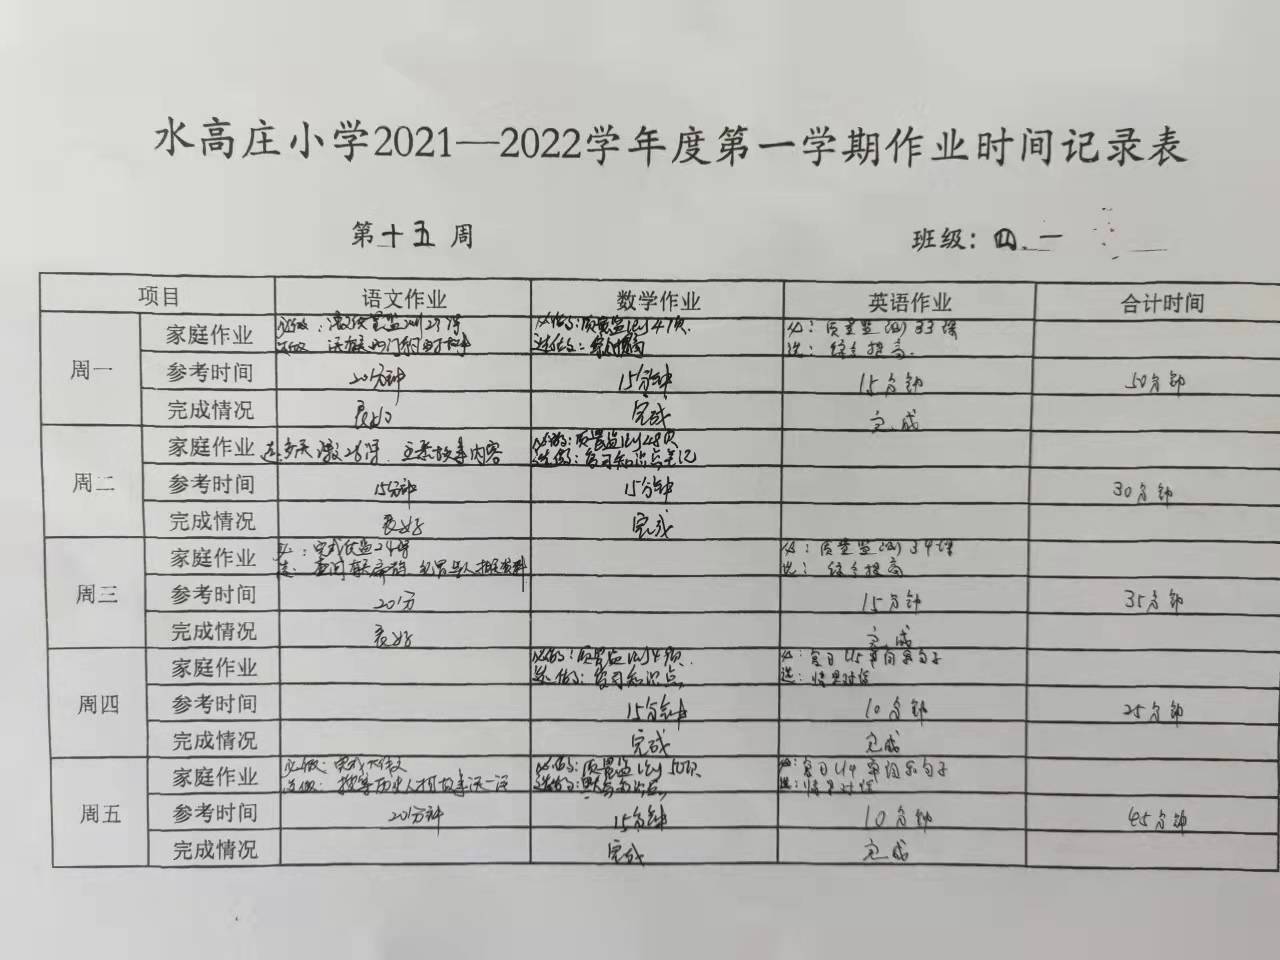 水高庄小学2021—2022学年度第一学期作业时间记录表
第十五周 班级：四.一
项目 语文作业 数学作业 英语作业 合计时间
周一
家庭作业 必做：质量监测47页 必：质量监测33课
选做： 选做：综合提高 选：综合提高.
参考时间 20分钟 15分钟 15分钟 50分钟
完成情况 良好 完成 完成
周二
家庭作业 故事内容 必做：质量监测48页
选做：复习知识点笔记
参考时间 15分钟 15分钟 30分钟
完成情况 良好 完成
周三
家庭作业 必：完成 24课 必：质量监测34课
选：查阅 选：综合提高
参考时间 20分 15分钟 35分钟
完成情况 良好 完成
周四
家庭作业 必做：质量监测49页. 必：复习U5单词和句子
选做：复习知识点 选：情景对话
参考时间 15分钟 10分钟 25分钟
完成情况 完成 完成
周五
家庭作业 必做：完成作文 必做：质量监测50页 必：复习U4单词和句子
选做： 历史人物故事 选做： 选：情景对话
参考时间 20分钟 15分钟 10分钟 45分钟
完成情况 完成 完成